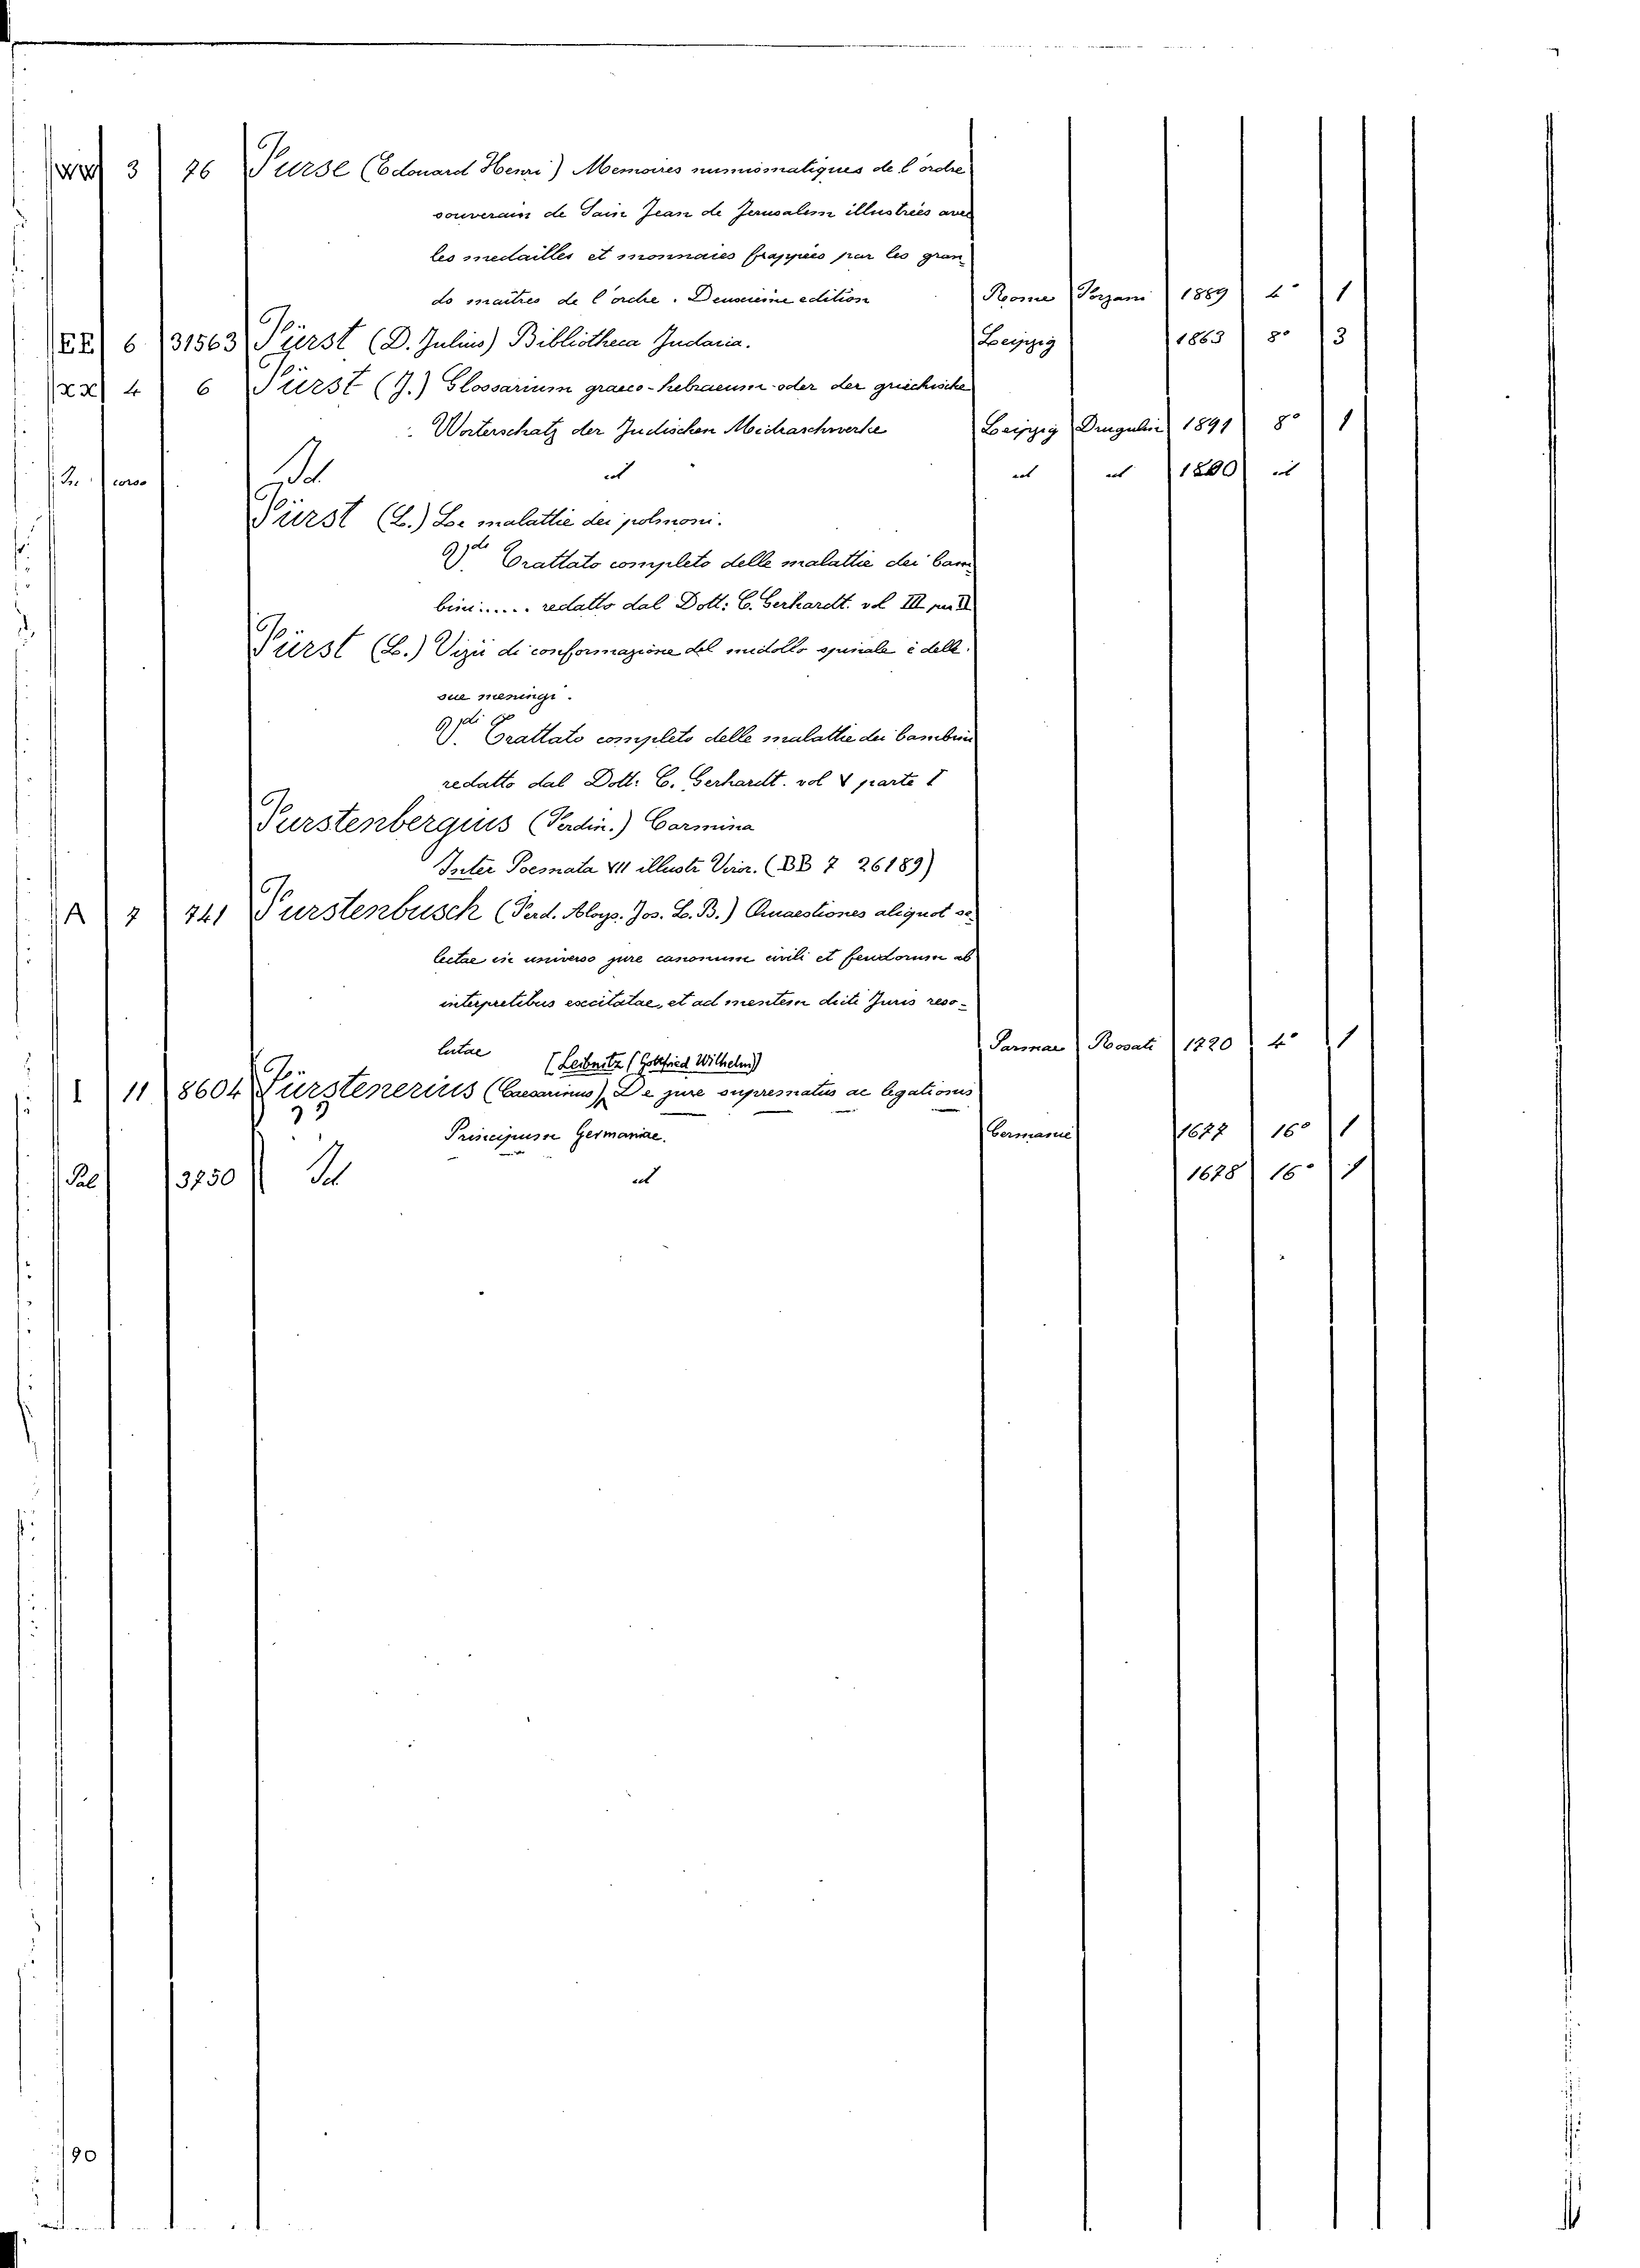 WW 3 76 Furse (Edouard Henri) Memoires numismatiques de l'ordre
souverain de Sain Jean de Jerusalem illustrées avec
les medailles et monnaies frappées par les gran
ds maitres de l'ordre. Deuxieme edition Rome Forzani 1889 4° 1
EE 6 31563 Fürst (D. Julius) Bibliotheca Judaica. Leipzig 1863 8° 3
XX 4 6 Fürst (J.) Glossarium graeco-hebraeum oder der griechische
Worterschatz der Judischen Midraschwerke Leipzig Drugulin 1891 8° 1
In corso Id id id id 1890 id
Fürst (L.) Le malattie dei polmoni.
V.di Trattato completo delle malattie dei bam
bini..... redatto dal Dott: C. Gerhardt. vol III par II
Fürst (L.) Vizii di conformazione del midollo spinale e delle
sue meningi.
V.di Trattato completo delle malattie dei bambini
redatto dal Dott: C. Gerhardt. vol V parte I
Furstenbergius (Ferdin.) Carmina
Inter Poemata VII illustr Viror. (BB 7 26189)
A 7 741 Furstenbusch (Ferd. Aloys. Jos. L. B.) Quaestiones aliquot se
lectae in universo jure canonum civili et feudorum ab
interpretibus excitatae, et ad mentem dicti Juris reso-
lutae Parmae Rosati 1720 4° 1
[Leibnitz (Gottfried Wilhelm)]
I 11 8604 Fürstenerius (Caesarinus) De jure suprematus ac legationis
33
Principum Germaniae. Germanie 1677 16° 1
Pal 3750 Id id 1678 16° 1
90